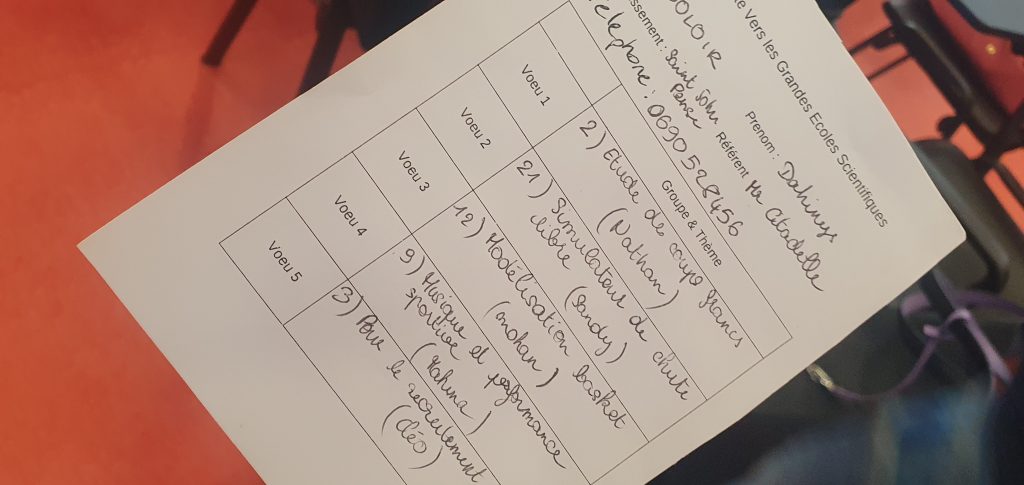 e Vers les Grandes Ecoles Scientifiques
DOLOIR
Prenom : Dahinys
ssement : Saint John
Perse
Référent Mr Catadelle
elephone : 0690 528456
Groupe & Thème
Voeu 1
2) Etude de coups francs
(Nathan)
Voeu 2
21) Simulateur de chute
libre (Sandy)
Voeu 3
12) Modélisation basket
(mohan)
Voeu 4
9) Musique et performance
sportive (Kahina)
Voeu 5
3) Pour le recrutement
(Cléo)